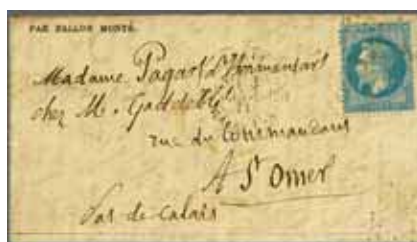 PAR BALLON MONTÉ.
Madame Pagart d'Hermansart
chez M.
rue du Commandant
A St Omer
Pas de Calais